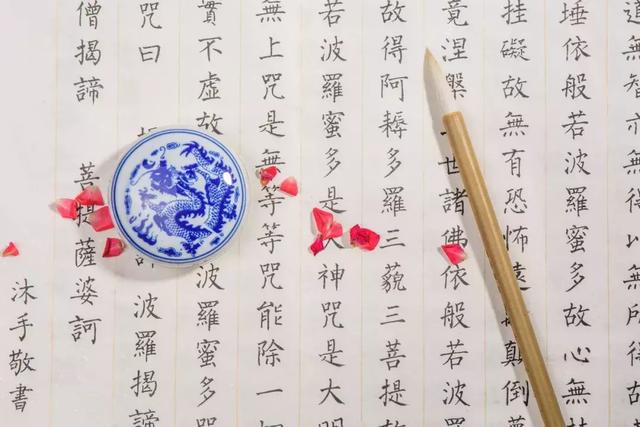 無智亦無得以無所得故
埵依般若波羅蜜多故心無
挂礙故無有恐怖遠顛倒
竟涅槃世諸佛依般若波
故得阿耨多羅三藐三菩提故
若波羅蜜多是大神咒是大明
無上咒是無等等咒能除一
實不虛故波羅蜜多咒
咒曰波羅揭諦
僧揭諦 菩提薩婆訶
沐手敬書